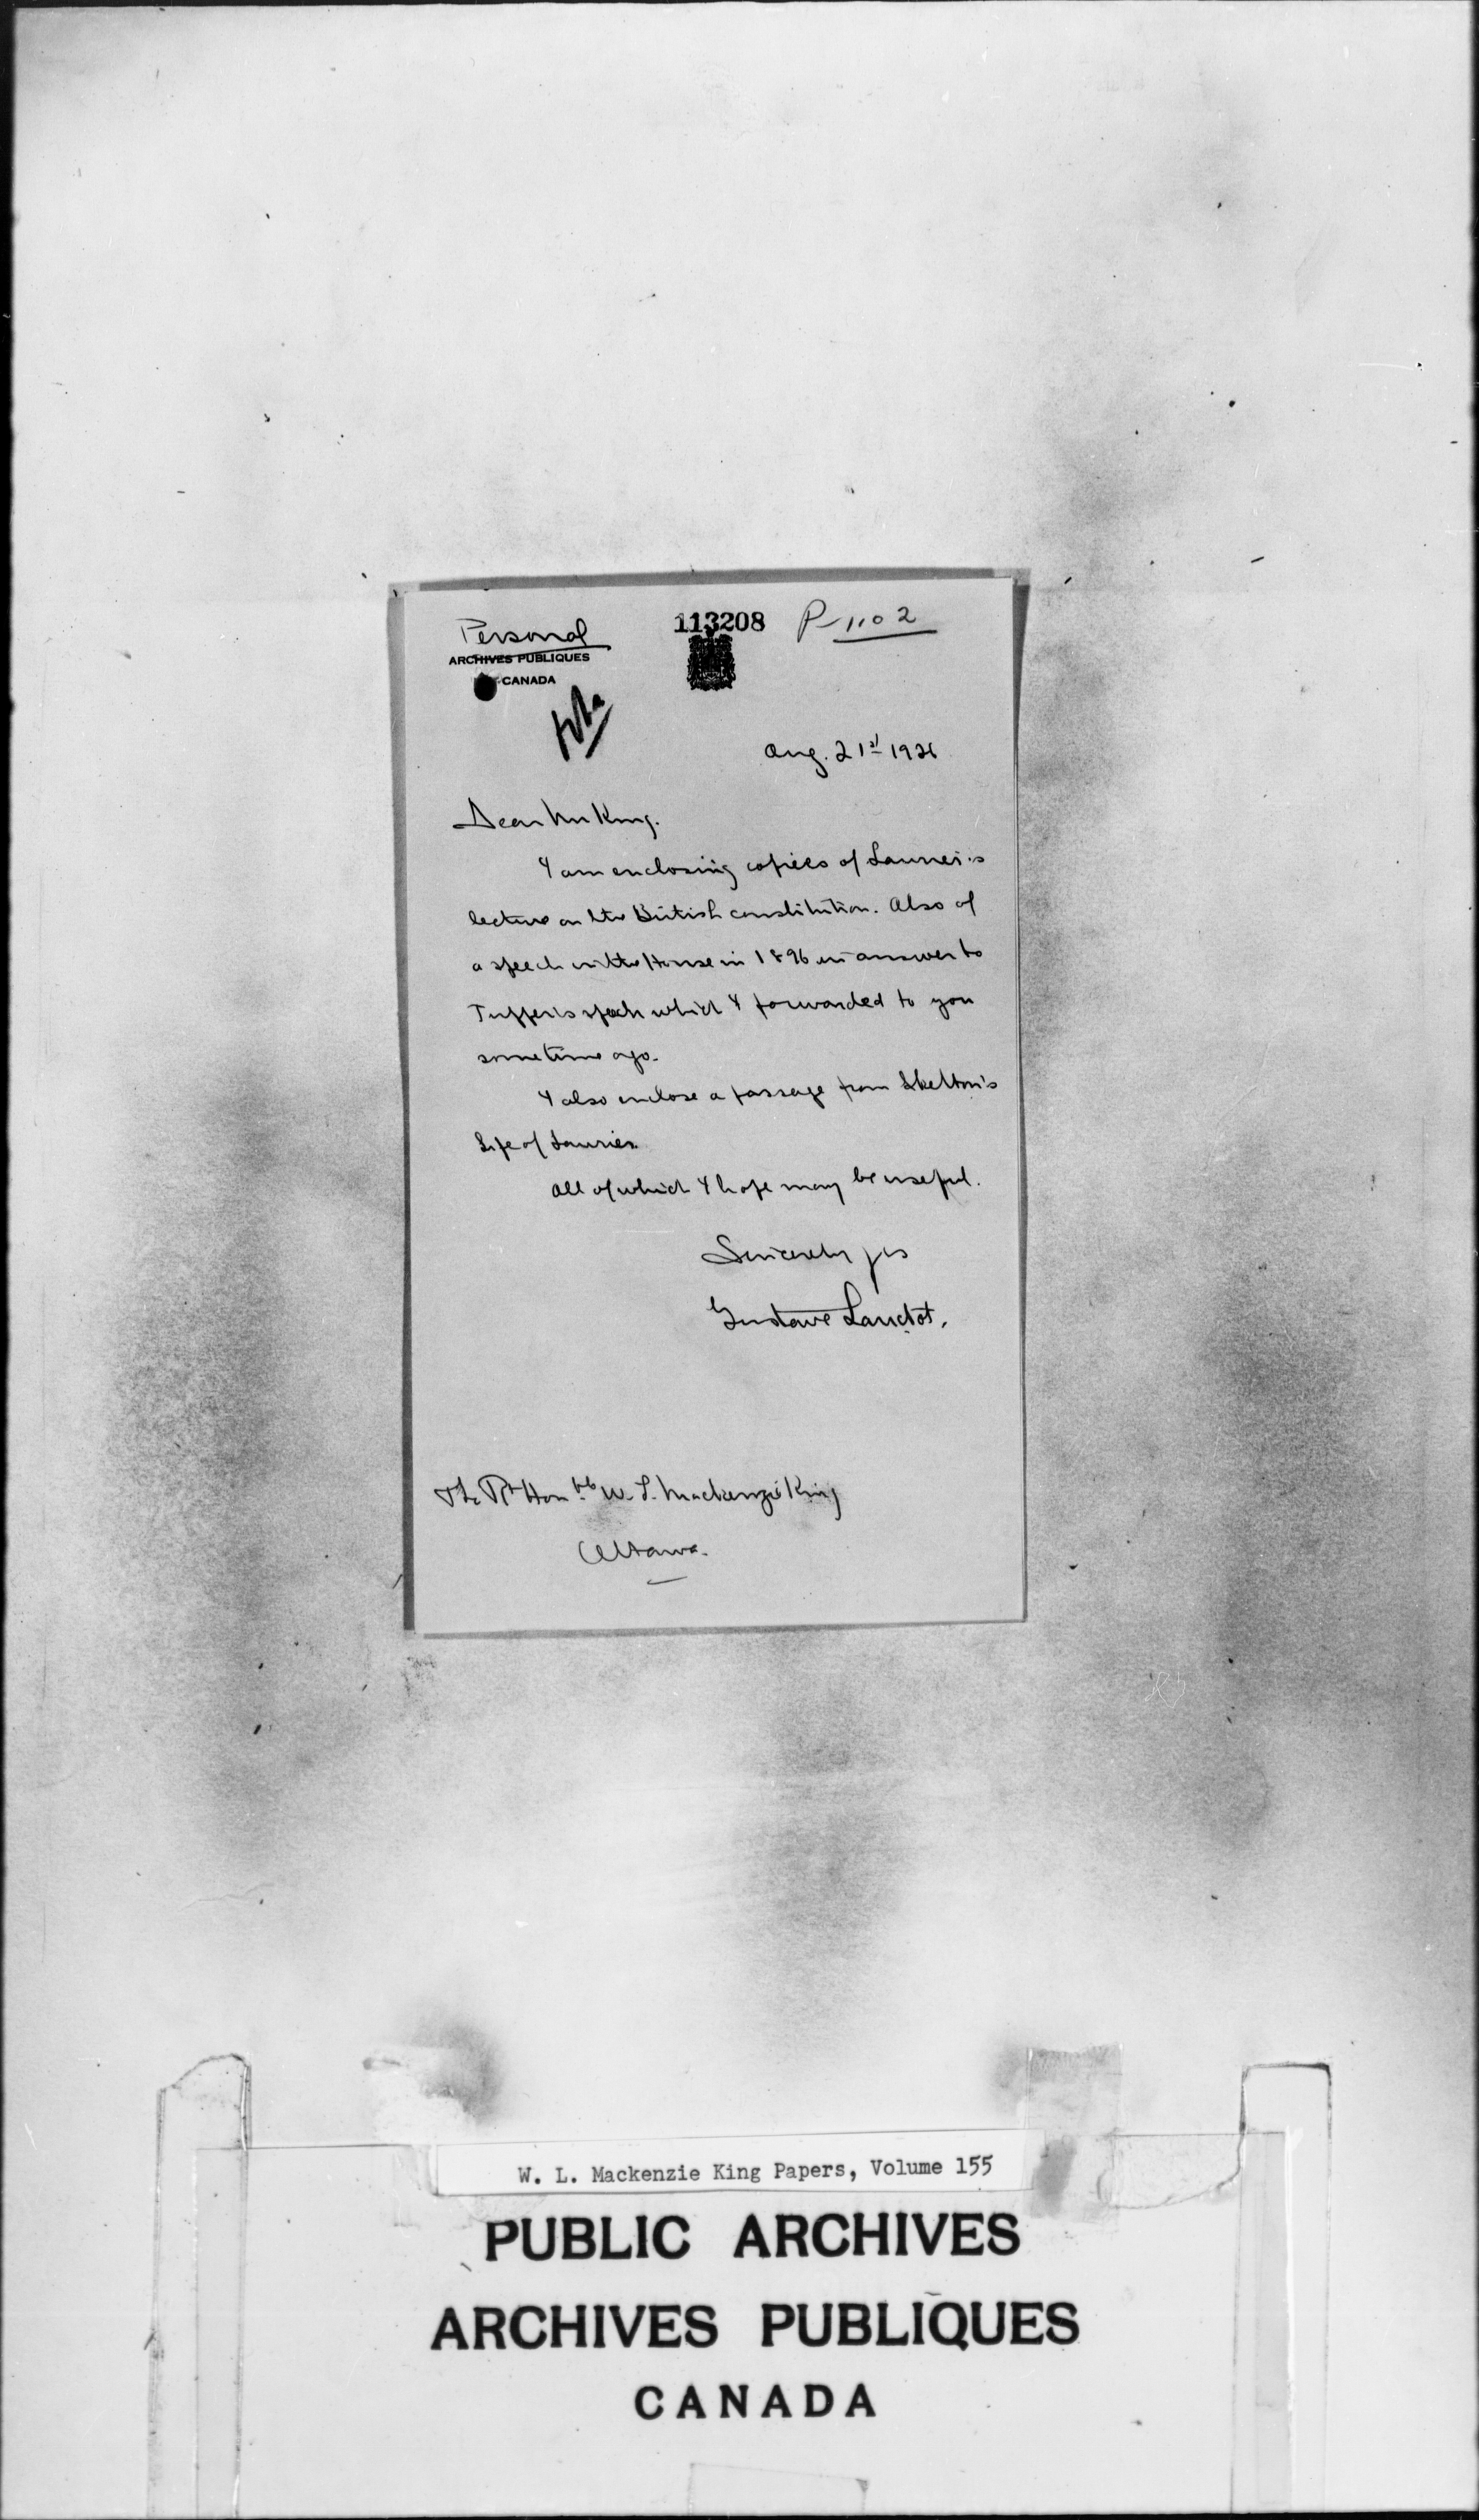 Personal
113208
P-1102
ARCHIVES PUBLIQUES
CANADA
Aug. 21st 1926
Dear Mr King.
I am enclosing copies of Laurier's
lecture on the British constitution. Also of
a speech in the House in 1896 in answer to
Tupper's speech which I forwarded to you
sometime ago.
I also enclose a passage from Skelton's
Life of Laurier.
All of which I hope may be useful.
Sincerely yrs
Gustave Lanctot.
The Rt Honble W. L. Mackenzie King
Ottawa.
W. L. Mackenzie King Papers, Volume 155
PUBLIC ARCHIVES
ARCHIVES PUBLIQUES
CANADA